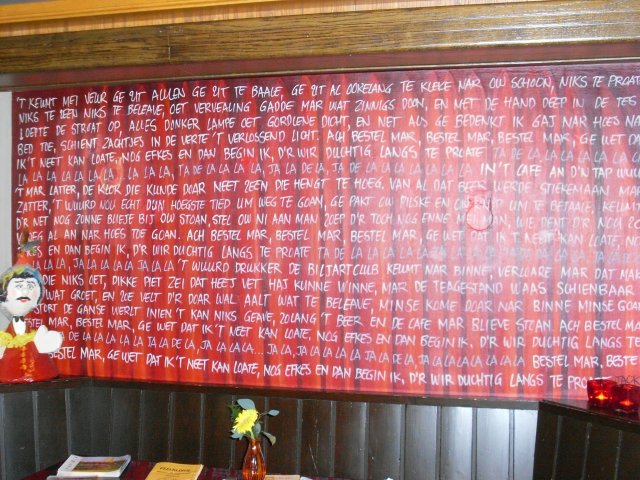 'T KEUMT MEI VEUR GE ZIT ALLLEN GE ZIT TE BAALE, GE ZIT AL OORELANG TE KLEKE NAR OW SCHOON, NIKS TE PROATE
NIKS TE ZEEN NIKS TE BELEAVE, OET VERVEALING GADDE MAR WAT ZINNIGS DOON, EN MET DE HAND DEEP IN DE TES
LOEPTE DE STRAAT OP, ALLES DONKER LAMPE OET GORDIENE DICHT, EN NET ALS GE BEDENKT IK GAJ NAR HOES NA
BED TOE, SCHIENT ZACHTJES IN DE VERTE 'T VERLOSSEND LICHT. ACH BESTEL MAR, BESTEL MAR, BESTEL MAR, GE WET DA
IK 'T NEET KAN LOATE, NOG EFKES EN DAN BEGIN IK, D'R WIR DUCHTIG LANGS TE PROATE TA DE LA LA LA LA LA LA
LA LA LA LA LA LA, TA DE LA LA LA LA, JA LA DE LA, JA DE LA LA LA LA LA LA LA IN 'T CAFE AN D'N TAP WUUR
'T MAR LATTER, DE KLOK DIE KUNDE DOAR NEET ZEEN DIE HENGT TE HOEG, VAN AL DAT BEER WERDE STIEKEMAAN MA
ZATTER, 'T WUURD NOU ECHT D'N HOEGSTE TIED UM WEG TE GOAN, GE PAKT OW PILSKE EN UM TE BETAALE, KEUMT
D'R NET NOG ZONNE BLIEJE BIJ OW STOAN, STEL OW NI AAN MAN ZOEP D'R TOCH NOG ENNE MEI
AL AN NAR HOES TOE GOAN. ACH BESTEL MAR, BESTEL MAR, BESTEL MAR, GE WET DAT IK 'T NEET KAN LOATE, NO
EN DAN BEGIN IK, D'R WIR DUCHTIG LANGS TE PROATE TA DE LA LA LA LA LA LA LA LA LA LA LA LA
LA LA, JA LA LA LA LA JA LA LA 'T WUURD DRUKKER DE BILJARTCLUB KEUMT NAR BINNE, VERLIARE MAR DAT MA
DIE NIKS OET, DIKKE PIET ZEI DAT HEEJ VET HAJ KUNNE WINNE, MAR DE TEAGESTAND WAAS SCHIENBAAR
WAT GROET, EN ZOE VELT D'R DOAR WAL AALT WAT TE BELEAVE, MINSE KOME DOAR NAR BINNE MINSE GOA
STORT DE GANSE WERLT INIEN 'T KAN NIKS GEAVE, ZOLANG 'T BEER EN DE CAFE MAR BLIEVE STOAN, ACH BESTEL MA
BESTEL MAR, BESTEL MAR, GE WET DAT IK 'T NEET KAN LOATE, NOG EFKES EN DAN BEGIN IK. D'R WIR DUCHTIG LANGS TE
DE LA LA LA LA LA LA LA JA LA DE LA, JA LA LA LA... JA LA, JA LA LA LA LA LA JA LA DE JA LA DE LA LA LA LA BESTEL MAR, BESTE
BESTEL MAR, GE WET DAT IK 'T NEET KAN LOATE, NOG EFKES EN DAN BEGIN IK, D'R WIR DUCHTIG LANGS TE PROA